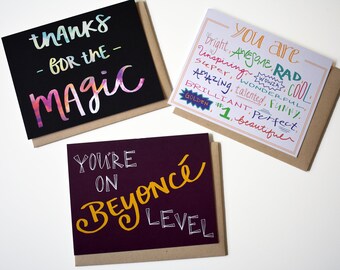 THANKS
- FOR THE -
MAGIC
you are
Bright, Awesome, RAD
Inspiring, COOL
super, WONDERFUL
AMAZING, talented, Funny
BRILLIANT Perfect
#1 beautiful
YOU'RE
ON
BEYONCÉ
LEVEL